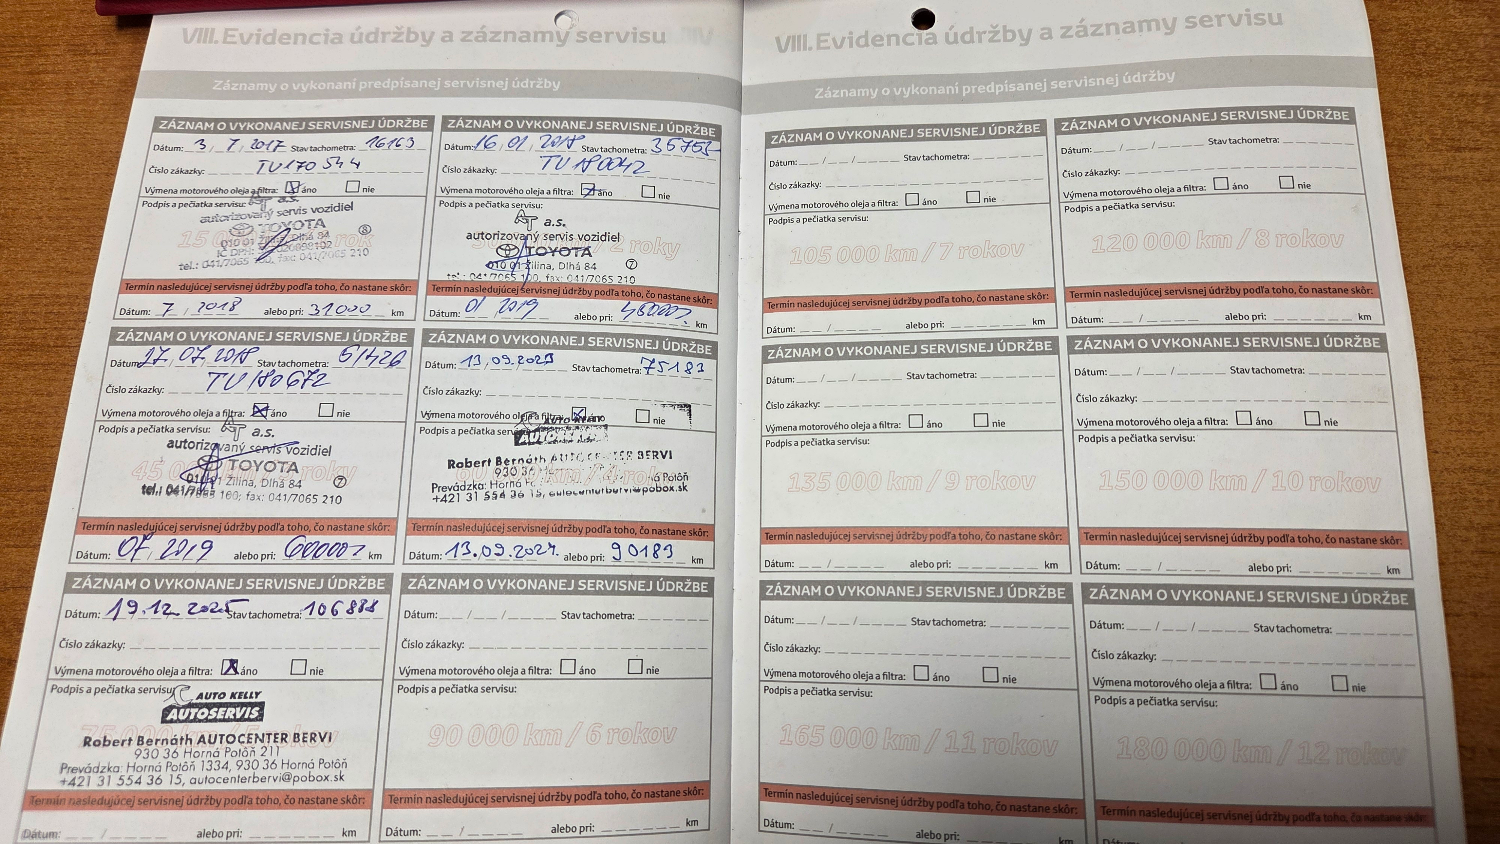 VIII. Evidencia údržby a záznamy servisu
Záznamy o vykonaní predpísanej servisnej údržby
ZÁZNAM O VYKONANEJ SERVISNEJ ÚDRŽBE
Dátum: 3 / 7 / 2017 Stav tachometra: 16163
Číslo zákazky: TU170544
Výmena motorového oleja a filtra: áno nie
Podpis a pečiatka servisu:
a.s.
autorizovaný servis vozidiel
TOYOTA
010 01 Žilina, Dlhá 84
tel.: 041/7065 160, fax: 041/7065 210
Termín nasledujúcej servisnej údržby podľa toho, čo nastane skôr:
Dátum: 7 / 2018 alebo pri: 31000 km
ZÁZNAM O VYKONANEJ SERVISNEJ ÚDRŽBE
Dátum: 16/01/2018 Stav tachometra: 35753
Číslo zákazky: TU180042
Výmena motorového oleja a filtra: áno nie
Podpis a pečiatka servisu:
a.s.
autorizovaný servis vozidiel
TOYOTA
010 01 Žilina, Dlhá 84 7
tel.: 041/7065 160, fax: 041/7065 210
Termín nasledujúcej servisnej údržby podľa toho, čo nastane skôr:
Dátum: 01 / 2019 alebo pri: km
ZÁZNAM O VYKONANEJ SERVISNEJ ÚDRŽBE
Dátum: 17/07/2018 Stav tachometra: 51426
Číslo zákazky: TU180672
Výmena motorového oleja a filtra: áno nie
Podpis a pečiatka servisu:
a.s.
autorizovaný servis vozidiel
TOYOTA
010 01 Žilina, Dlhá 84 7
tel.: 041/7065 160; fax: 041/7065 210
Termín nasledujúcej servisnej údržby podľa toho, čo nastane skôr:
Dátum: 07 / 2019 alebo pri: km
ZÁZNAM O VYKONANEJ SERVISNEJ ÚDRŽBE
Dátum: 13.09.2023 Stav tachometra: 75183
Číslo zákazky:
Výmena motorového oleja a filtra: áno nie
Podpis a pečiatka servisu:
AUTO KELLY
AUTOSERVIS
Robert Bernáth AUTOCENTER BERVI
930 36
Prevádzka: Horná Potôň
+421 31 554 36 15, autocenterbervi@pobox.sk
Termín nasledujúcej servisnej údržby podľa toho, čo nastane skôr:
Dátum: 13.09.2024. alebo pri: 90183 km
ZÁZNAM O VYKONANEJ SERVISNEJ ÚDRŽBE
Dátum: 19.12.2025 Stav tachometra: 106888
Číslo zákazky:
Výmena motorového oleja a filtra: áno nie
Podpis a pečiatka servisu:
AUTO KELLY
AUTOSERVIS
Robert Bernáth AUTOCENTER BERVI
930 36 Horná Potôň 211
Prevádzka: Horná Potôň 1334, 930 36 Horná Potôň
+421 31 554 36 15, autocenterbervi@pobox.sk
Termín nasledujúcej servisnej údržby podľa toho, čo nastane skôr:
Dátum: alebo pri: km
ZÁZNAM O VYKONANEJ SERVISNEJ ÚDRŽBE
Dátum: Stav tachometra:
Číslo zákazky:
Výmena motorového oleja a filtra: áno nie
Podpis a pečiatka servisu:
90 000 km / 6 rokov
Termín nasledujúcej servisnej údržby podľa toho, čo nastane skôr:
Dátum: alebo pri: km
VIII. Evidencia údržby a záznamy servisu
Záznamy o vykonaní predpísanej servisnej údržby
ZÁZNAM O VYKONANEJ SERVISNEJ ÚDRŽBE
Dátum: Stav tachometra:
Číslo zákazky:
Výmena motorového oleja a filtra: áno nie
Podpis a pečiatka servisu:
105 000 km / 7 rokov
Termín nasledujúcej servisnej údržby podľa toho, čo nastane skôr:
Dátum: alebo pri: km
ZÁZNAM O VYKONANEJ SERVISNEJ ÚDRŽBE
Dátum: Stav tachometra:
Číslo zákazky:
Výmena motorového oleja a filtra: áno nie
Podpis a pečiatka servisu:
120 000 km / 8 rokov
Termín nasledujúcej servisnej údržby podľa toho, čo nastane skôr:
Dátum: alebo pri: km
ZÁZNAM O VYKONANEJ SERVISNEJ ÚDRŽBE
Dátum: Stav tachometra:
Číslo zákazky:
Výmena motorového oleja a filtra: áno nie
Podpis a pečiatka servisu:
135 000 km / 9 rokov
Termín nasledujúcej servisnej údržby podľa toho, čo nastane skôr:
Dátum: alebo pri: km
ZÁZNAM O VYKONANEJ SERVISNEJ ÚDRŽBE
Dátum: Stav tachometra:
Číslo zákazky:
Výmena motorového oleja a filtra: áno nie
Podpis a pečiatka servisu:
150 000 km / 10 rokov
Termín nasledujúcej servisnej údržby podľa toho, čo nastane skôr:
Dátum: alebo pri: km
ZÁZNAM O VYKONANEJ SERVISNEJ ÚDRŽBE
Dátum: Stav tachometra:
Číslo zákazky:
Výmena motorového oleja a filtra: áno nie
Podpis a pečiatka servisu:
165 000 km / 11 rokov
Termín nasledujúcej servisnej údržby podľa toho, čo nastane skôr:
Dátum: alebo pri: km
ZÁZNAM O VYKONANEJ SERVISNEJ ÚDRŽBE
Dátum: Stav tachometra:
Číslo zákazky:
Výmena motorového oleja a filtra: áno nie
Podpis a pečiatka servisu:
180 000 km / 12 rokov
Termín nasledujúcej servisnej údržby podľa toho, čo nastane skôr: